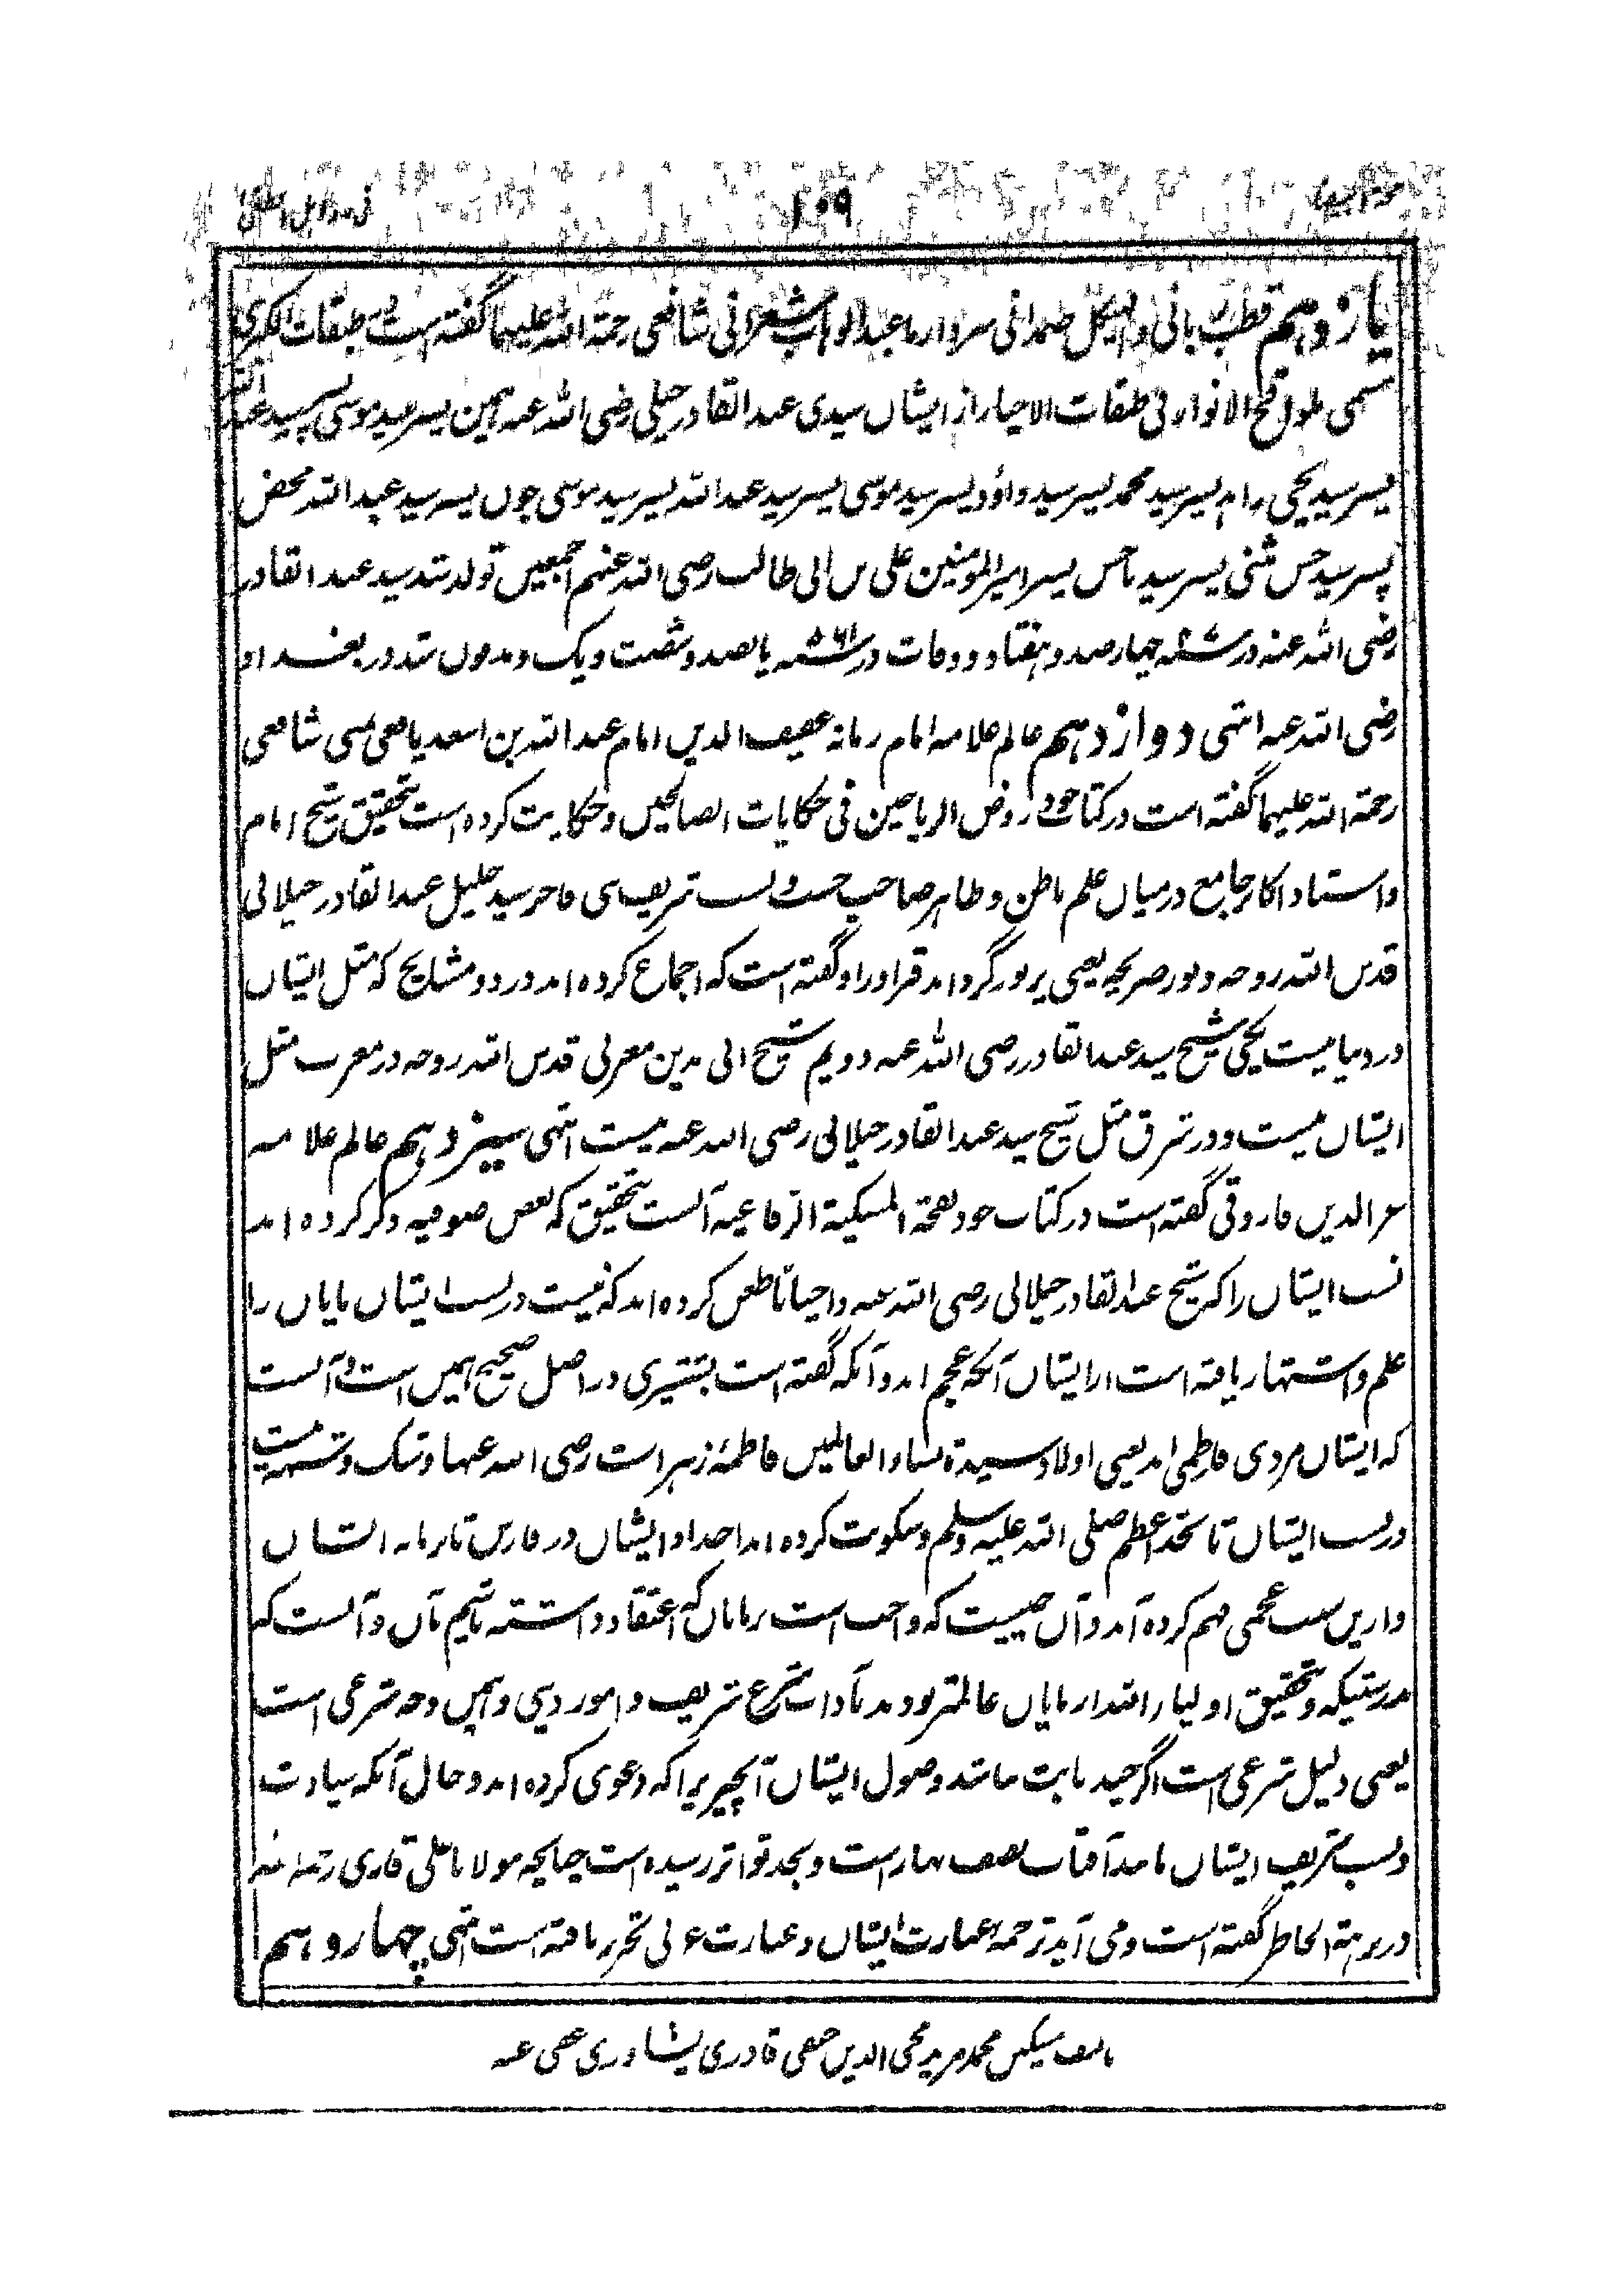 ۱۰۹
یازدهم قطب ربانی و هیکل صمدانی سردار ما عبدالوهاب شعرانی شافعی رحمة الله علیهما گفته است در طبقات الکبری
مسمی بلواقح الانوار فی طبقات الاخیار از ایشان سیدی عبدالقادر جیلی رضی الله عنه همین پسر سید موسی پسر سید عبدالله
پسر سید یحیی زاهد پسر سید محمد پسر سید داؤد پسر سید موسی پسر سید عبدالله پسر سید موسی جون پسر سید عبدالله محض
پسر سید حسن مثنی پسر سید ناحسن پسر امیرالمؤمنین علی بن ابی طالب رضی الله عنهم اجمعین تولد شد سید عبدالقادر
رضی الله عنه در سنه چهار صد و هفتاد و وفات در سنه ۵۶۱ پانصد و شصت و یک و مدفون شد در بغداد
رضی الله عنه انتهی دوازدهم عالم علامه امام زمانه عفیف الدین امام عبدالله بن اسعد یافعی یمنی شافعی
رحمة الله علیهما گفته است در کتاب خود روض الریاحین فی حکایات الصالحین و حکایت کرده است تحقیق شیخ امام
و استاد اکابر جامع درمیان علم باطن و ظاهر صاحب حسب و نسب شریف سی فاخر سید جلیل عبدالقادر جیلانی
قدس الله روحه و نور ضریحه یعنی پر نور گرداند قبر او را و گفته است که اجماع کرده اند در دو مشایخ که مثل ایشان
در دنیا نیست یکی شیخ سید عبدالقادر رضی الله عنه دویم شیخ ابی مدین مغربی قدس الله روحه در مغرب مثل
ایشان نیست و در شرق مثل شیخ سید عبدالقادر جیلانی رضی الله عنه نیست انتهی سیزدهم عالم علامه
عزالدین فاروقی گفته است در کتاب خود نفحة المسکیة الرفاعیه آنست تحقیق که بعض صوفیه ذکر کرده اند
نسب ایشان را که شیخ عبدالقادر جیلانی رضی الله عنه و احیانا طعن کرده اند که نیست در نسب ایشان بایان را
علم و اشتهار یافته است از ایشان آنچه عجم اند و آنکه گفته است بشتیری در اصل صحیح همین است و آنست
که ایشان مردی فاطمی اند یعنی اولاد سیدة نساء العالمین فاطمۀ زهرا است رضی الله عنها و شک و شبهه نیست
در نسب ایشان تا فخذ اعظم صلی الله علیه وسلم و سکونت کرده اند اجداد ایشان در فارس تا زمانه ایشان
و ازین سبب عجمی فهم کرده اند و آن چیست که واجب است بر مایان که اعتقاد داشته باشیم بآن و آنست که
بدرستیکه و تحقیق اولیاء الله از مایان عالمتر بودند بآداب شرع شریف و امور دینی و همین وجه شرعی است
یعنی دلیل شرعی است اگر چه ثابت نباشد وصول ایشان آنچیز را که دعوی کرده اند و حال آنکه سیادت
و نسب شریف ایشان مانند آفتاب نصف نهار است و بحد تواتر رسیده است چنانچه مولانا علی قاری رحمة الله
در نزهة الخاطر گفته است و می آید ترجمه عبارت ایشان و عبارت عربی تحریر یافته است انتهی چهاردهم
مسکین محمد مرید محی الدین حنفی قادری پشاوری عفی عنه